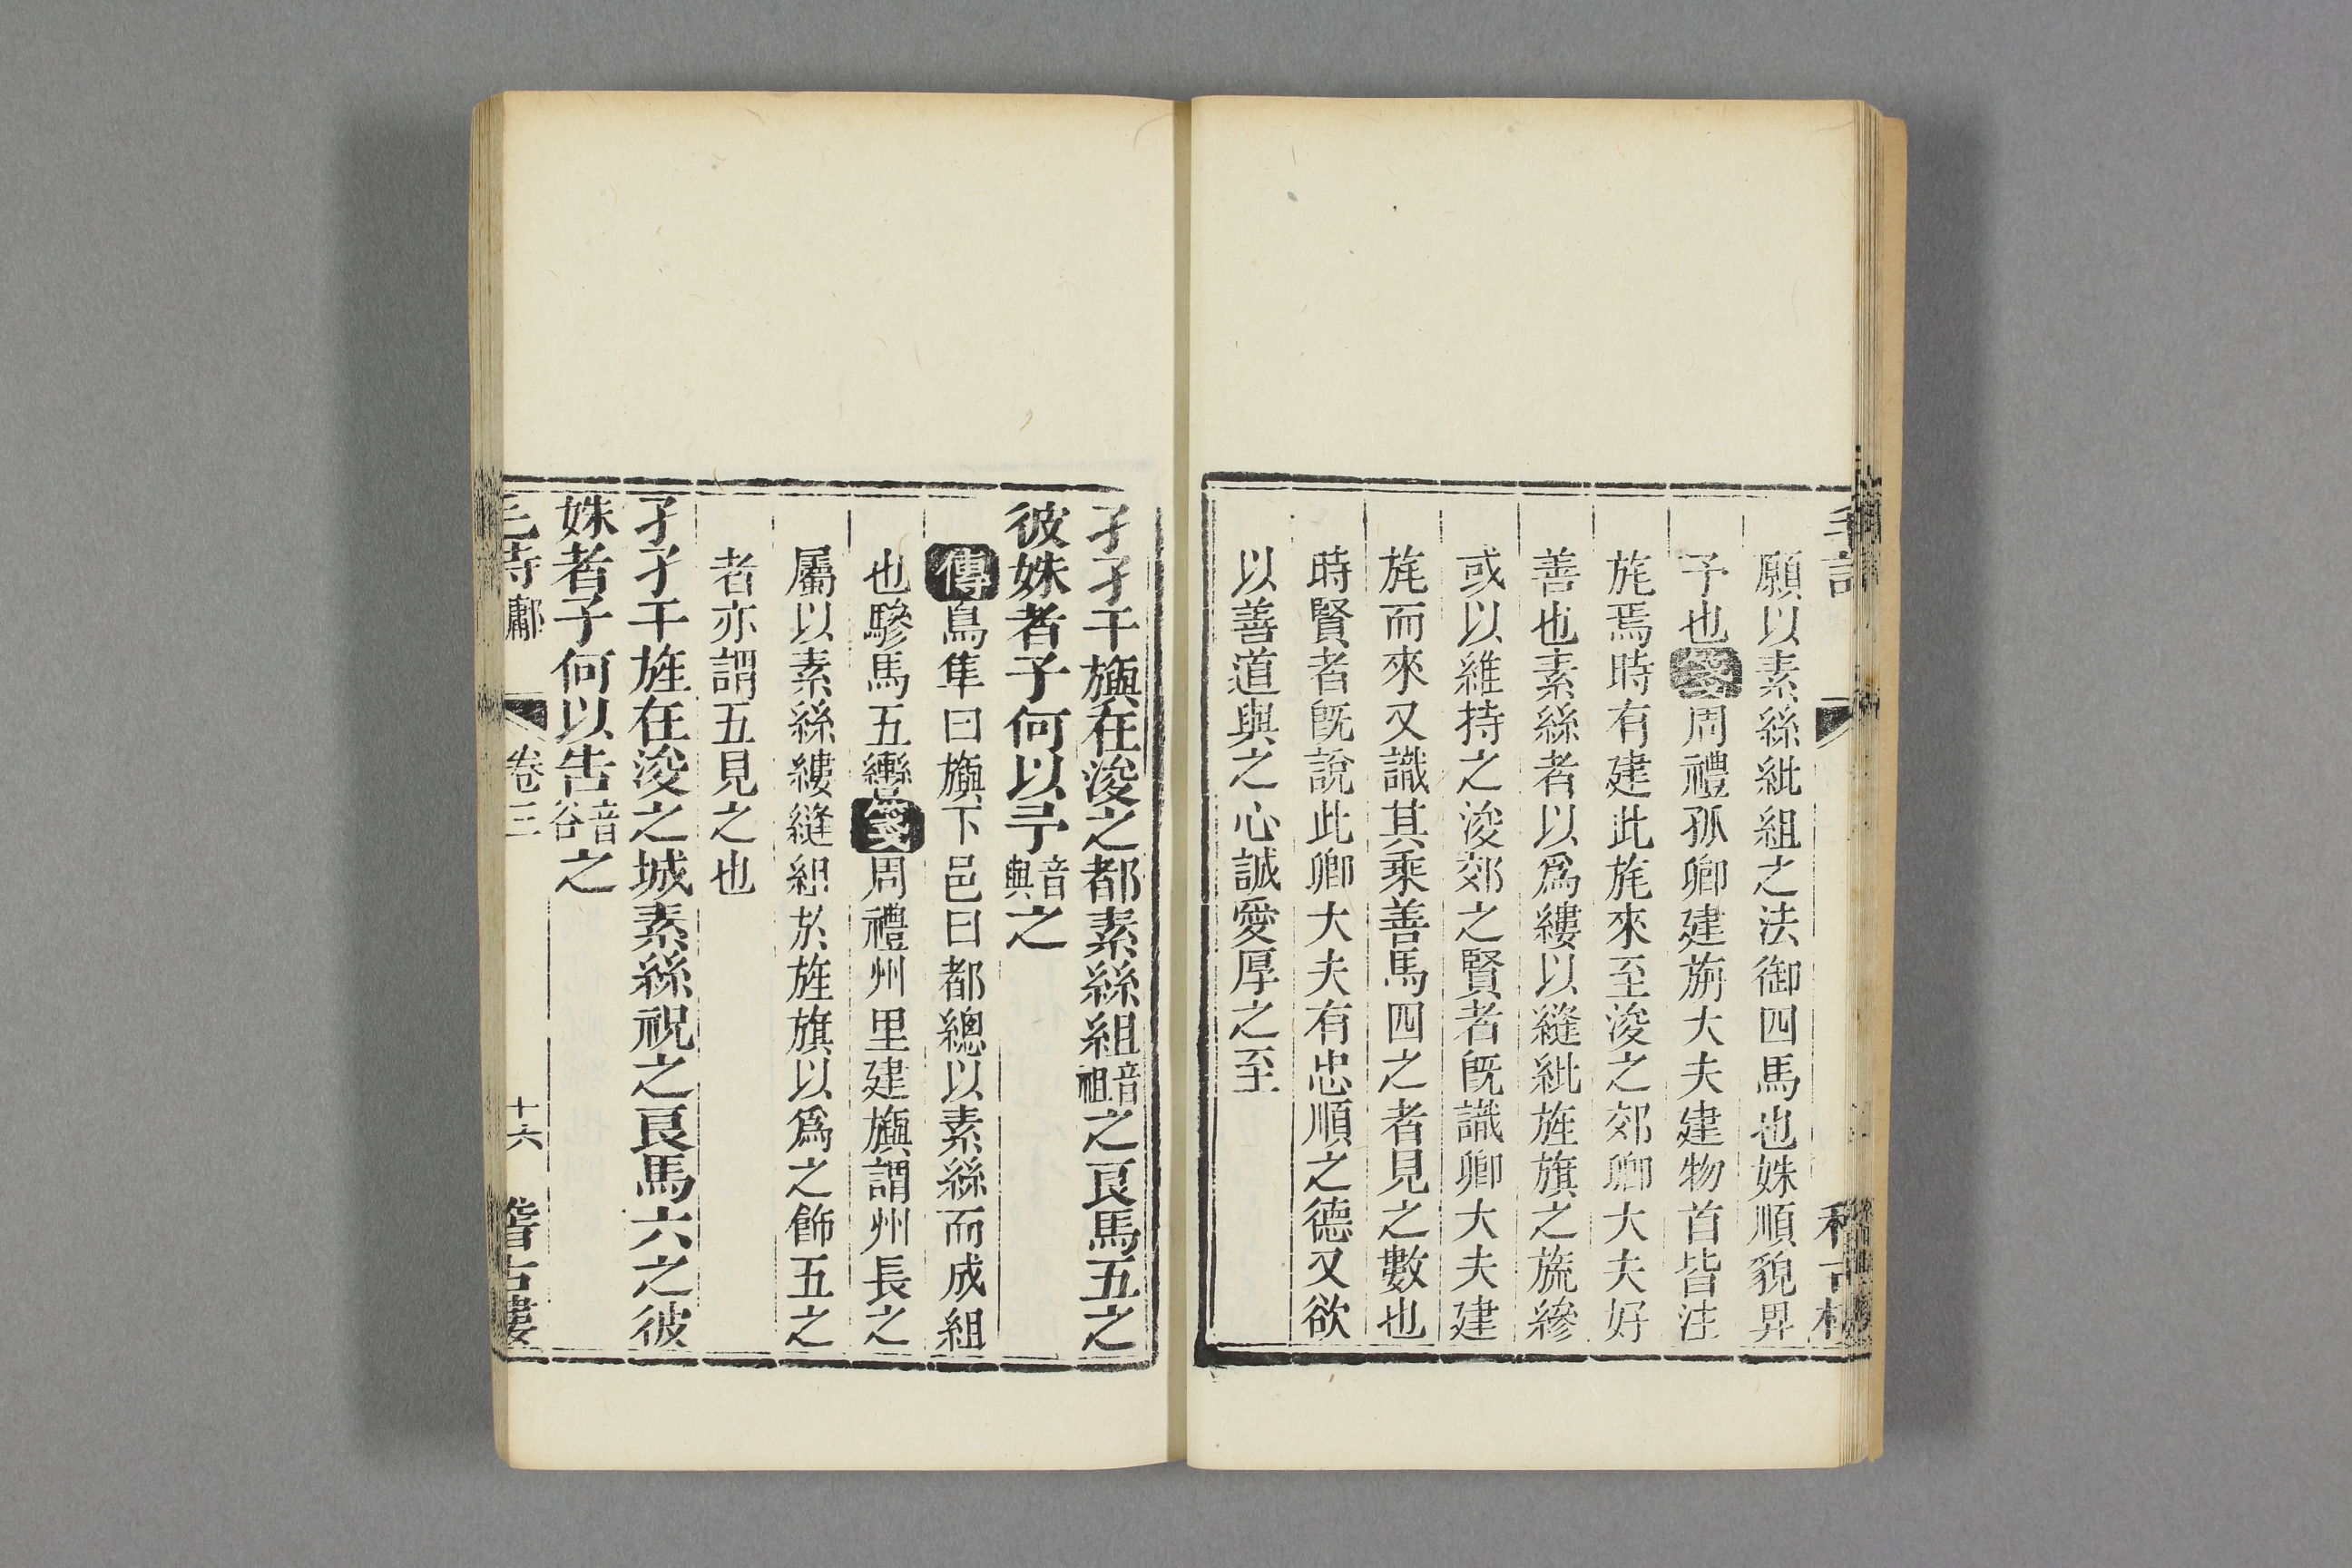 願以素絲紕組之法御四馬也姝順貌畀
予也箋周禮孤卿建旃大夫建物首皆注
旄焉時有建此旄來至浚之郊卿大夫好
善也素絲者以爲縷以縫紕旌旗之旒縿
或以維持之浚郊之賢者旣識卿大夫建
旄而來又識其乘善馬四之者見之數也
時賢者旣說此卿大夫有忠順之德又欲
以善道與之心誠愛厚之至
孑孑干旟在浚之都素絲組音祖之良馬五之
彼姝者子何以予音與之
傳鳥隼曰旟下邑曰都總以素絲而成組
也驂馬五轡箋周禮州里建旟謂州長之
屬以素絲縷縫組於旌旗以爲之飾五之
者亦謂五見之也
孑孑干旌在浚之城素絲祝之良馬六之彼
姝者子何以告音谷之
毛詩鄘 卷三 十六 稽古樓